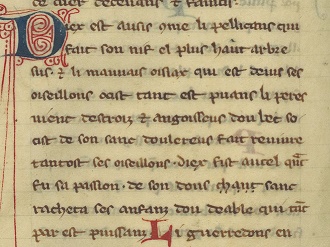 de ciels decevans ⁊ faintis.
Diex est ausis ome li pellicans qui
fait son nif el plus haut arbre
sus. ⁊ li mauvais oisiax qui est deius ses
oseillons ocist tant est puans li peres
uient destroiz ⁊ angoisseus dou bec so
cist de son sanc doulereus fait reuiure
tantost ses oiseillons. Diex fist autel qñt
fu sa passion. de son douz chaut sanc
racheta ses anfanz dou deable qui tāt
par est puissanz. Li guerredons en